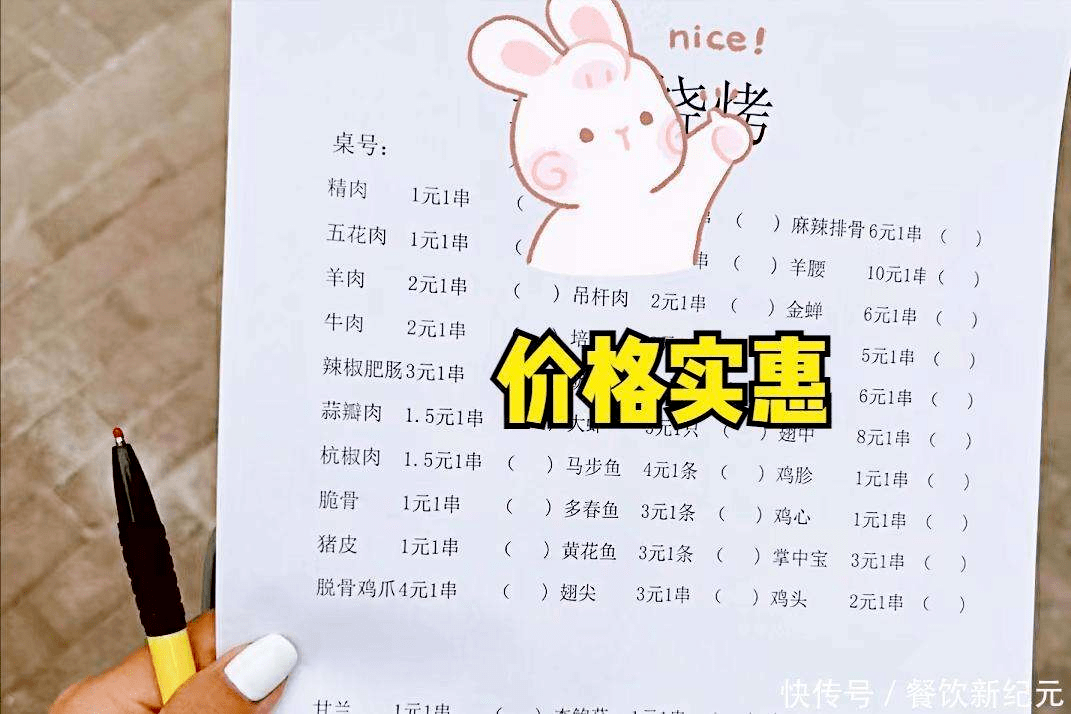 nice!
烧烤
桌号:
精肉 1元1串 (
五花肉 1元1串 (
羊肉 2元1串 ( ) 吊杆肉 2元1串 ( ) 金蝉 6元1串 ( )
牛肉 2元1串
辣椒肥肠3元1串
蒜瓣肉 1.5元1串
杭椒肉 1.5元1串 ( ) 马步鱼 4元1条 ( ) 鸡胗 1元1串 ( )
脆骨 1元1串 ( ) 多春鱼 3元1条 ( ) 鸡心 1元1串 ( )
猪皮 1元1串 ( ) 黄花鱼 3元1条 ( ) 掌中宝 3元1串 ( )
脱骨鸡爪4元1串 ( ) 翅尖 3元1串 ( ) 鸡头 2元1串 ( )
串 ( ) 麻辣排骨6元1串 ( )
串 ( ) 羊腰 10元1串 ( )
5元1串 ( )
6元1串 ( )
翅中 8元1串 ( )
价格实惠
甘兰 1元1串
快传号 / 餐饮新纪元